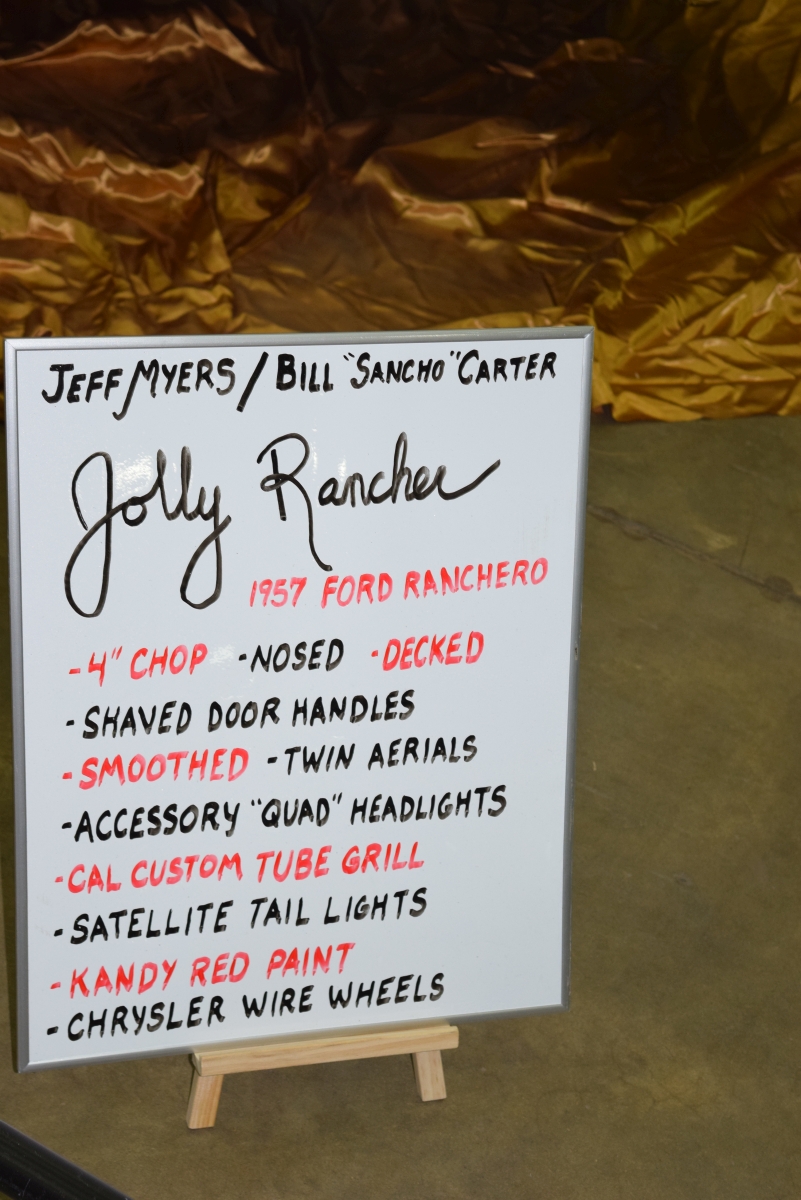 JEFF MYERS / BILL "SANCHO" CARTER
Jolly Rancher
1957 FORD RANCHERO
-4" CHOP -NOSED -DECKED
-SHAVED DOOR HANDLES
-SMOOTHED -TWIN AERIALS
-ACCESSORY "QUAD" HEADLIGHTS
-CAL CUSTOM TUBE GRILL
-SATELLITE TAIL LIGHTS
-KANDY RED PAINT
-CHRYSLER WIRE WHEELS